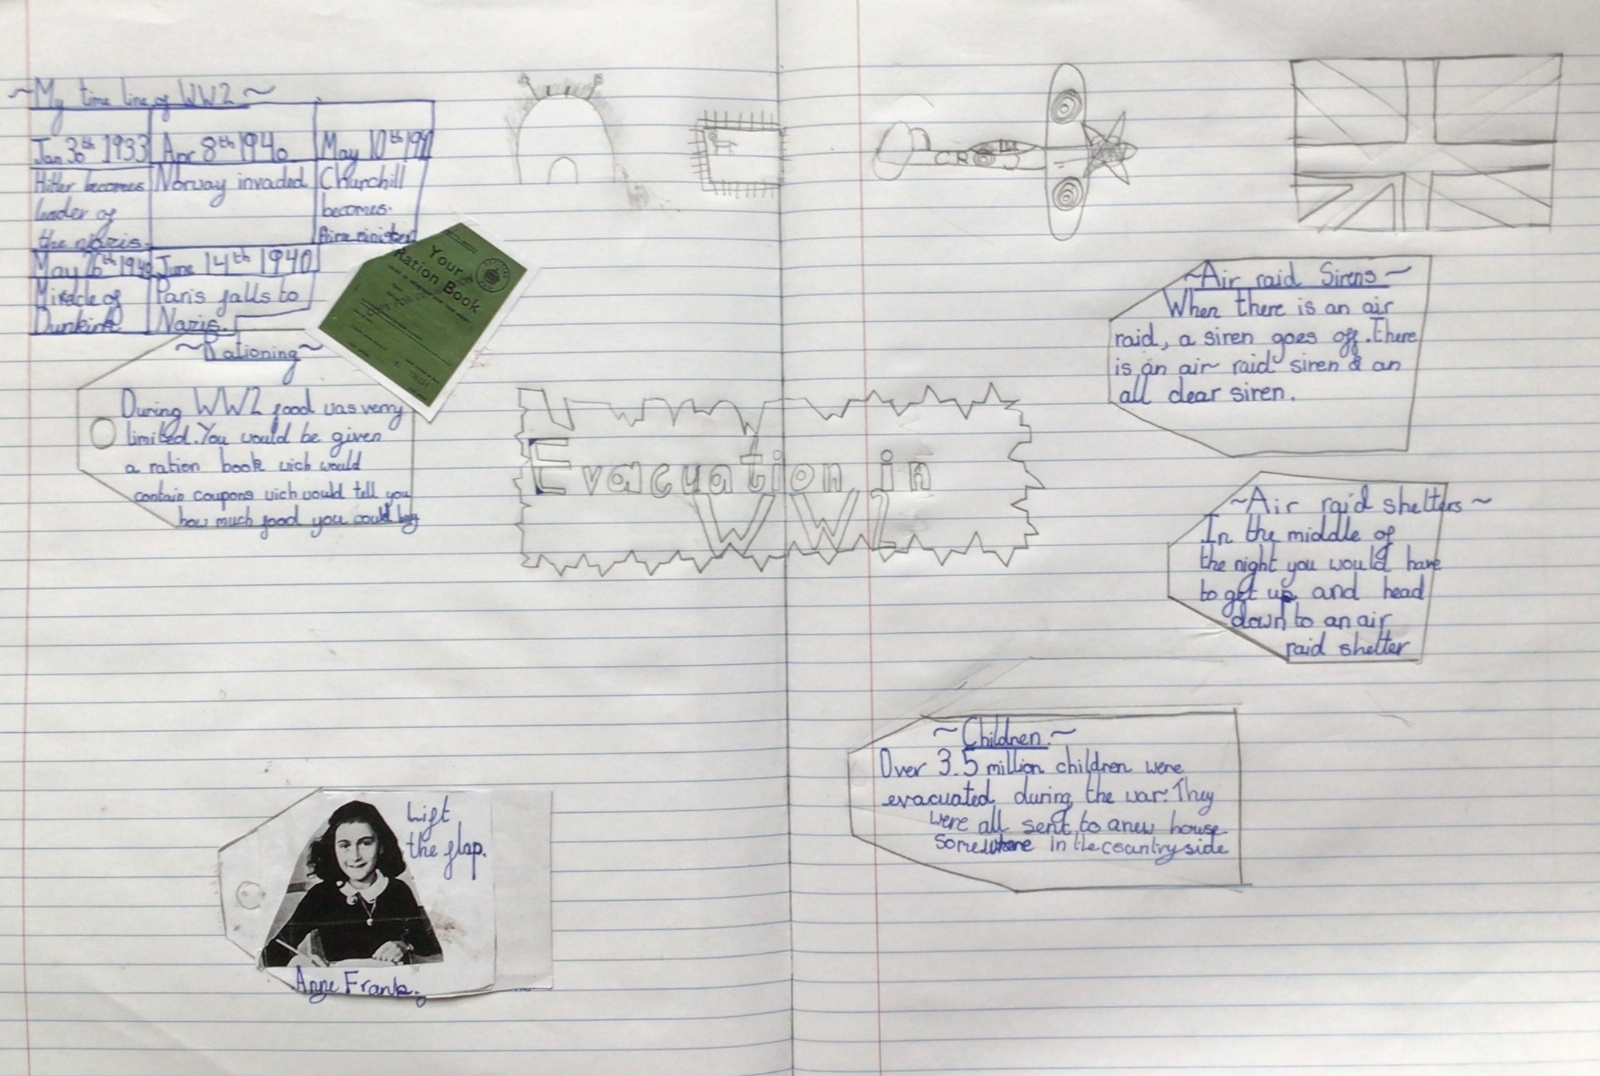 ~My time line of WW2~
Jan 30th 1933
Hitler becomes
leader of
the nazis.
Apr 8th 1940
Norway invaded
May 10th 1940
Churchill
becomes.
Prime minister
May 26th 1940
Miracle of
Dunkirk
June 14th 1940
Paris falls to
Nazis.
Your
Ration Book
~Rationing~
During WW2 food was verry
limited. You would be given
a ration book wich would
contain coupons wich would tell you
how much food you could buy
Evacuation in
WW2
Lift
the flap.
Anne Frank.
~Air raid Sirens~
When there is an air
raid, a siren goes off. There
is an air raid siren & an
all clear siren.
~Air raid shelters~
In the middle of
the night you would have
to get up and head
down to an air
raid shelter
~Children.~
Over 3.5 million children were
evacuated during the war. They
were all sent to a new house
Somewhere in the country side